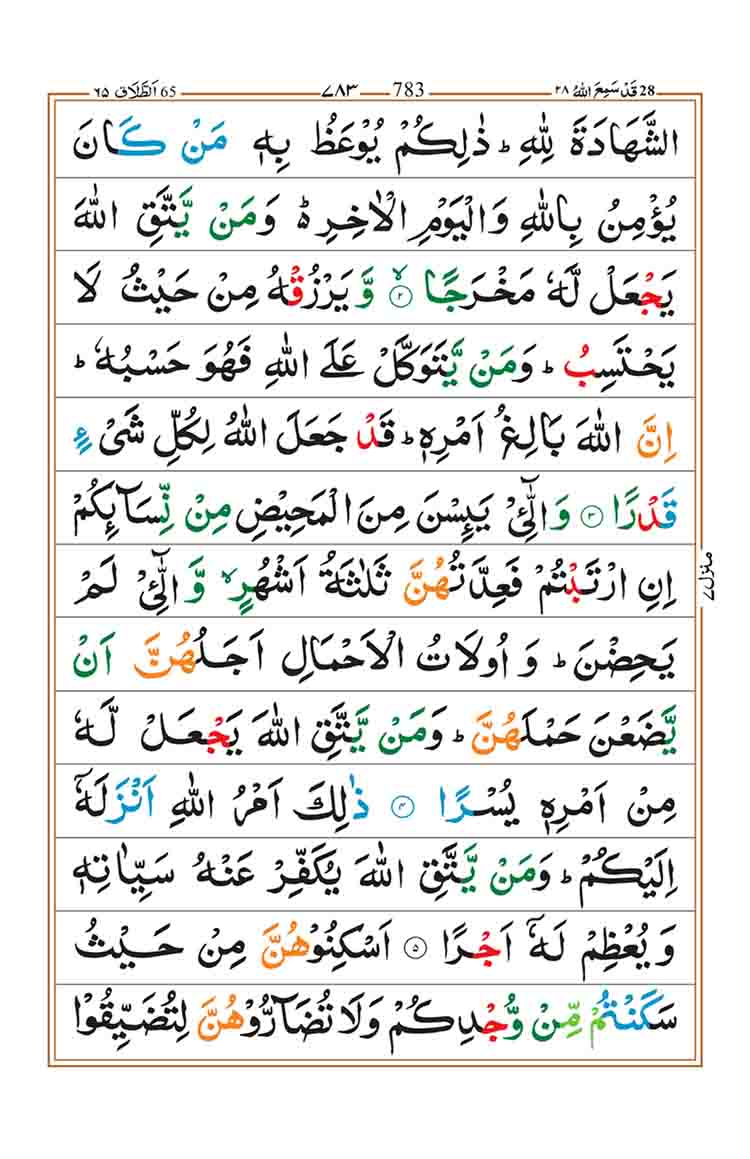 28 قَدْ سَمِعَ اللّٰهُ ۲۸ 783 ۷۸۳ 65 اَلطَّلَاق ۶۵
الشَّهَادَةَ لِلّٰهِ ؕ ذٰلِكُمْ يُوْعَظُ بِهٖ مَنْ كَانَ
يُؤْمِنُ بِاللّٰهِ وَالْيَوْمِ الْاٰخِرِ ؕ۬ وَمَنْ يَّتَّقِ اللّٰهَ
يَجْعَلْ لَّهٗ مَخْرَجًا ۙ۲ وَّيَرْزُقْهُ مِنْ حَيْثُ لَا
يَحْتَسِبُ ؕ وَمَنْ يَّتَوَكَّلْ عَلَى اللّٰهِ فَهُوَ حَسْبُهٗ ؕ
اِنَّ اللّٰهَ بَالِغُ اَمْرِهٖ ؕ قَدْ جَعَلَ اللّٰهُ لِكُلِّ شَیْءٍ
قَدْرًا ۳ وَالّٰٓـِٔيْ يَىِٕسْنَ مِنَ الْمَحِيْضِ مِنْ نِّسَآىِٕكُمْ
اِنِ ارْتَبْتُمْ فَعِدَّتُهُنَّ ثَلٰثَةُ اَشْهُرٍ ۙ وَّالّٰٓـِٔيْ لَمْ
يَحِضْنَ ؕ وَاُولَاتُ الْاَحْمَالِ اَجَلُهُنَّ اَنْ
يَّضَعْنَ حَمْلَهُنَّ ؕ وَمَنْ يَّتَّقِ اللّٰهَ يَجْعَلْ لَّهٗ
مِنْ اَمْرِهٖ يُسْرًا ۴ ذٰلِكَ اَمْرُ اللّٰهِ اَنْزَلَهٗۤ
اِلَيْكُمْ ؕ وَمَنْ يَّتَّقِ اللّٰهَ يُكَفِّرْ عَنْهُ سَيِّاٰتِهٖ
وَيُعْظِمْ لَهٗۤ اَجْرًا ۵ اَسْكِنُوْهُنَّ مِنْ حَيْثُ
سَكَنْتُمْ مِّنْ وُّجْدِكُمْ وَلَا تُضَآرُّوْهُنَّ لِتُضَيِّقُوْا
منزل ۷